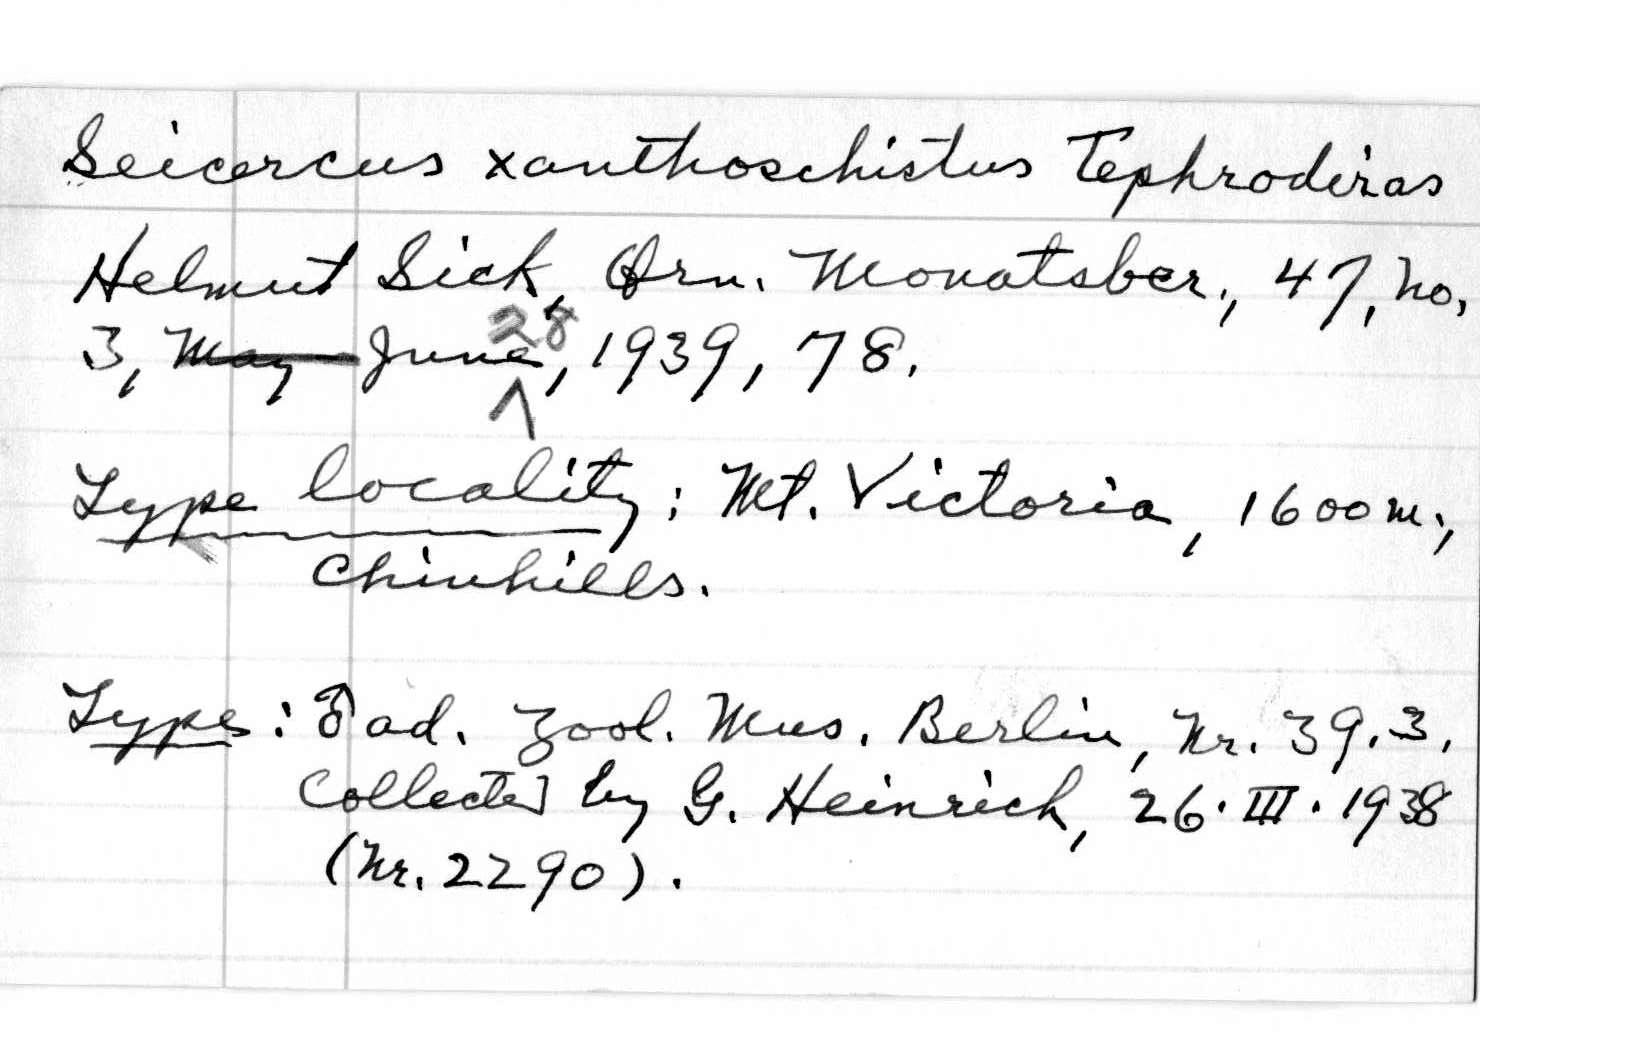 Seicercus xanthoschistus Tephrodiras
Helmut Sick, Orn. Monatsber., 47, no.
3, May June 28, 1939, 78.
Type locality: Mt. Victoria, 1600 m.,
Chinhills.
Type: ♂ ad. Zool. Mus. Berlin, Nr. 39.3.
Collected by G. Heinrich, 26.III.1938
(Nr. 2290).